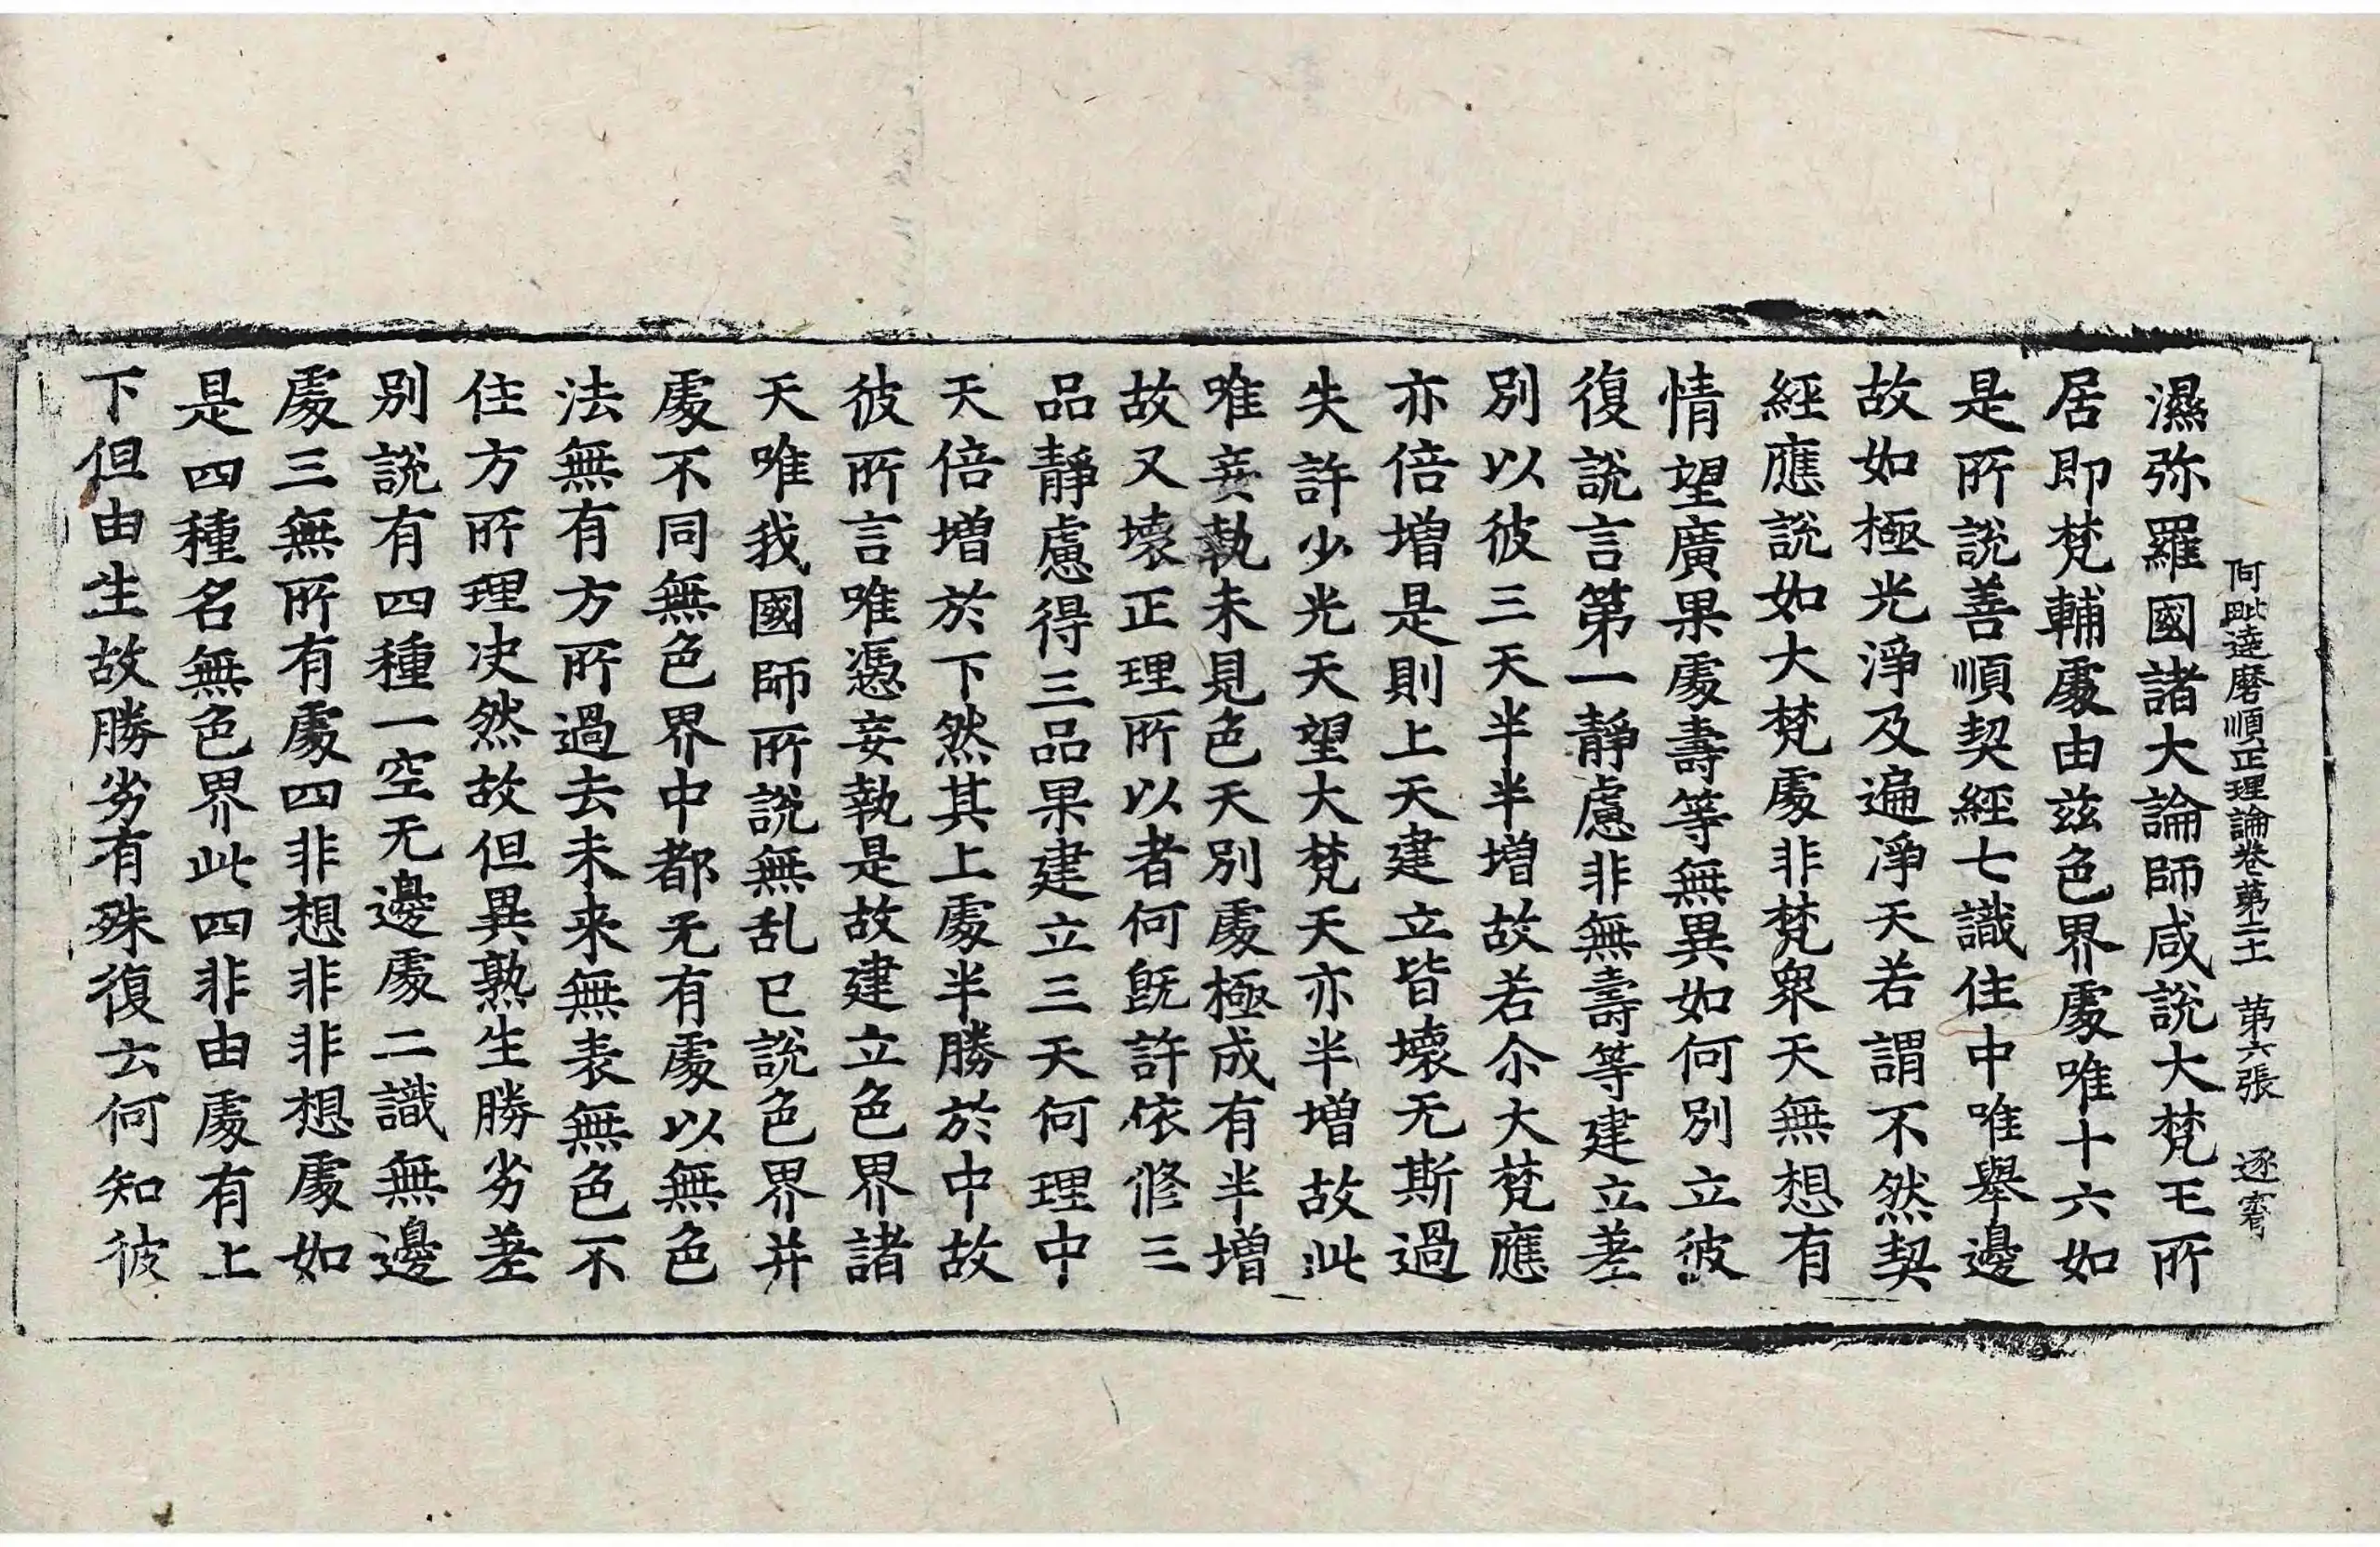 濕弥羅國諸大論師咸說大梵王所
居即梵輔處由兹色界處唯十六如
是所說善順契經七識住中唯舉邊
故如極光淨及遍淨天若謂不然契
經應說如大梵處非梵衆天無想有
情望廣果處壽等無異如何別立彼
復說言第一靜慮非無壽等建立差
別以彼三天半半增故若尒大梵應
亦倍增是則上天建立皆壞无斯過
失許少光天望大梵天亦半增故此
唯妄執未見色天別處極成有半增
故又壞正理所以者何既許依修三
品靜慮得三品果建立三天何理中
天倍增於下然其上處半勝於中故
彼所言唯憑妄執是故建立色界諸
天唯我國師所說無乱已說色界并
處不同無色界中都无有處以無色
法無有方所過去未来無表無色不
住方所理决然故但異熟生勝劣差
別說有四種一空无邊處二識無邊
處三無所有處四非想非非想處如
是四種名無色界此四非由處有上
下但由生故勝劣有殊復云何知彼
阿毗達磨順正理論卷第二十一 第六張 逐